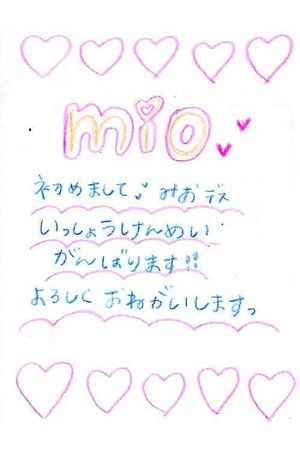 mio
初めまして みおデス
いっしょうけんめい
がんばります!!
よろしくおねがいしますっ